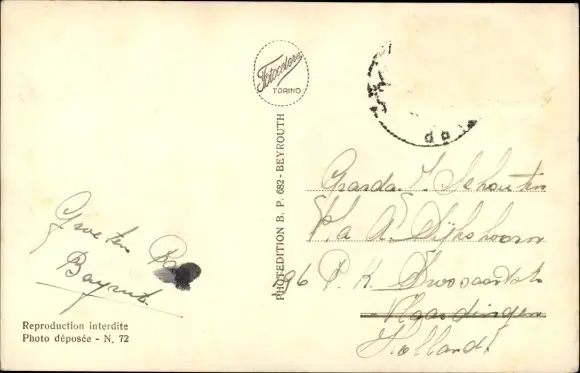 Fotocelere
TORINO
PHOTEDITION B. P. 682 - BEYROUTH
Groeten
Bayrut
Reproduction interdite
Photo déposée - N. 72
J. Schouten
P/a A. Dijkshoorn
96 P. K.
Vlaardingen
Holland